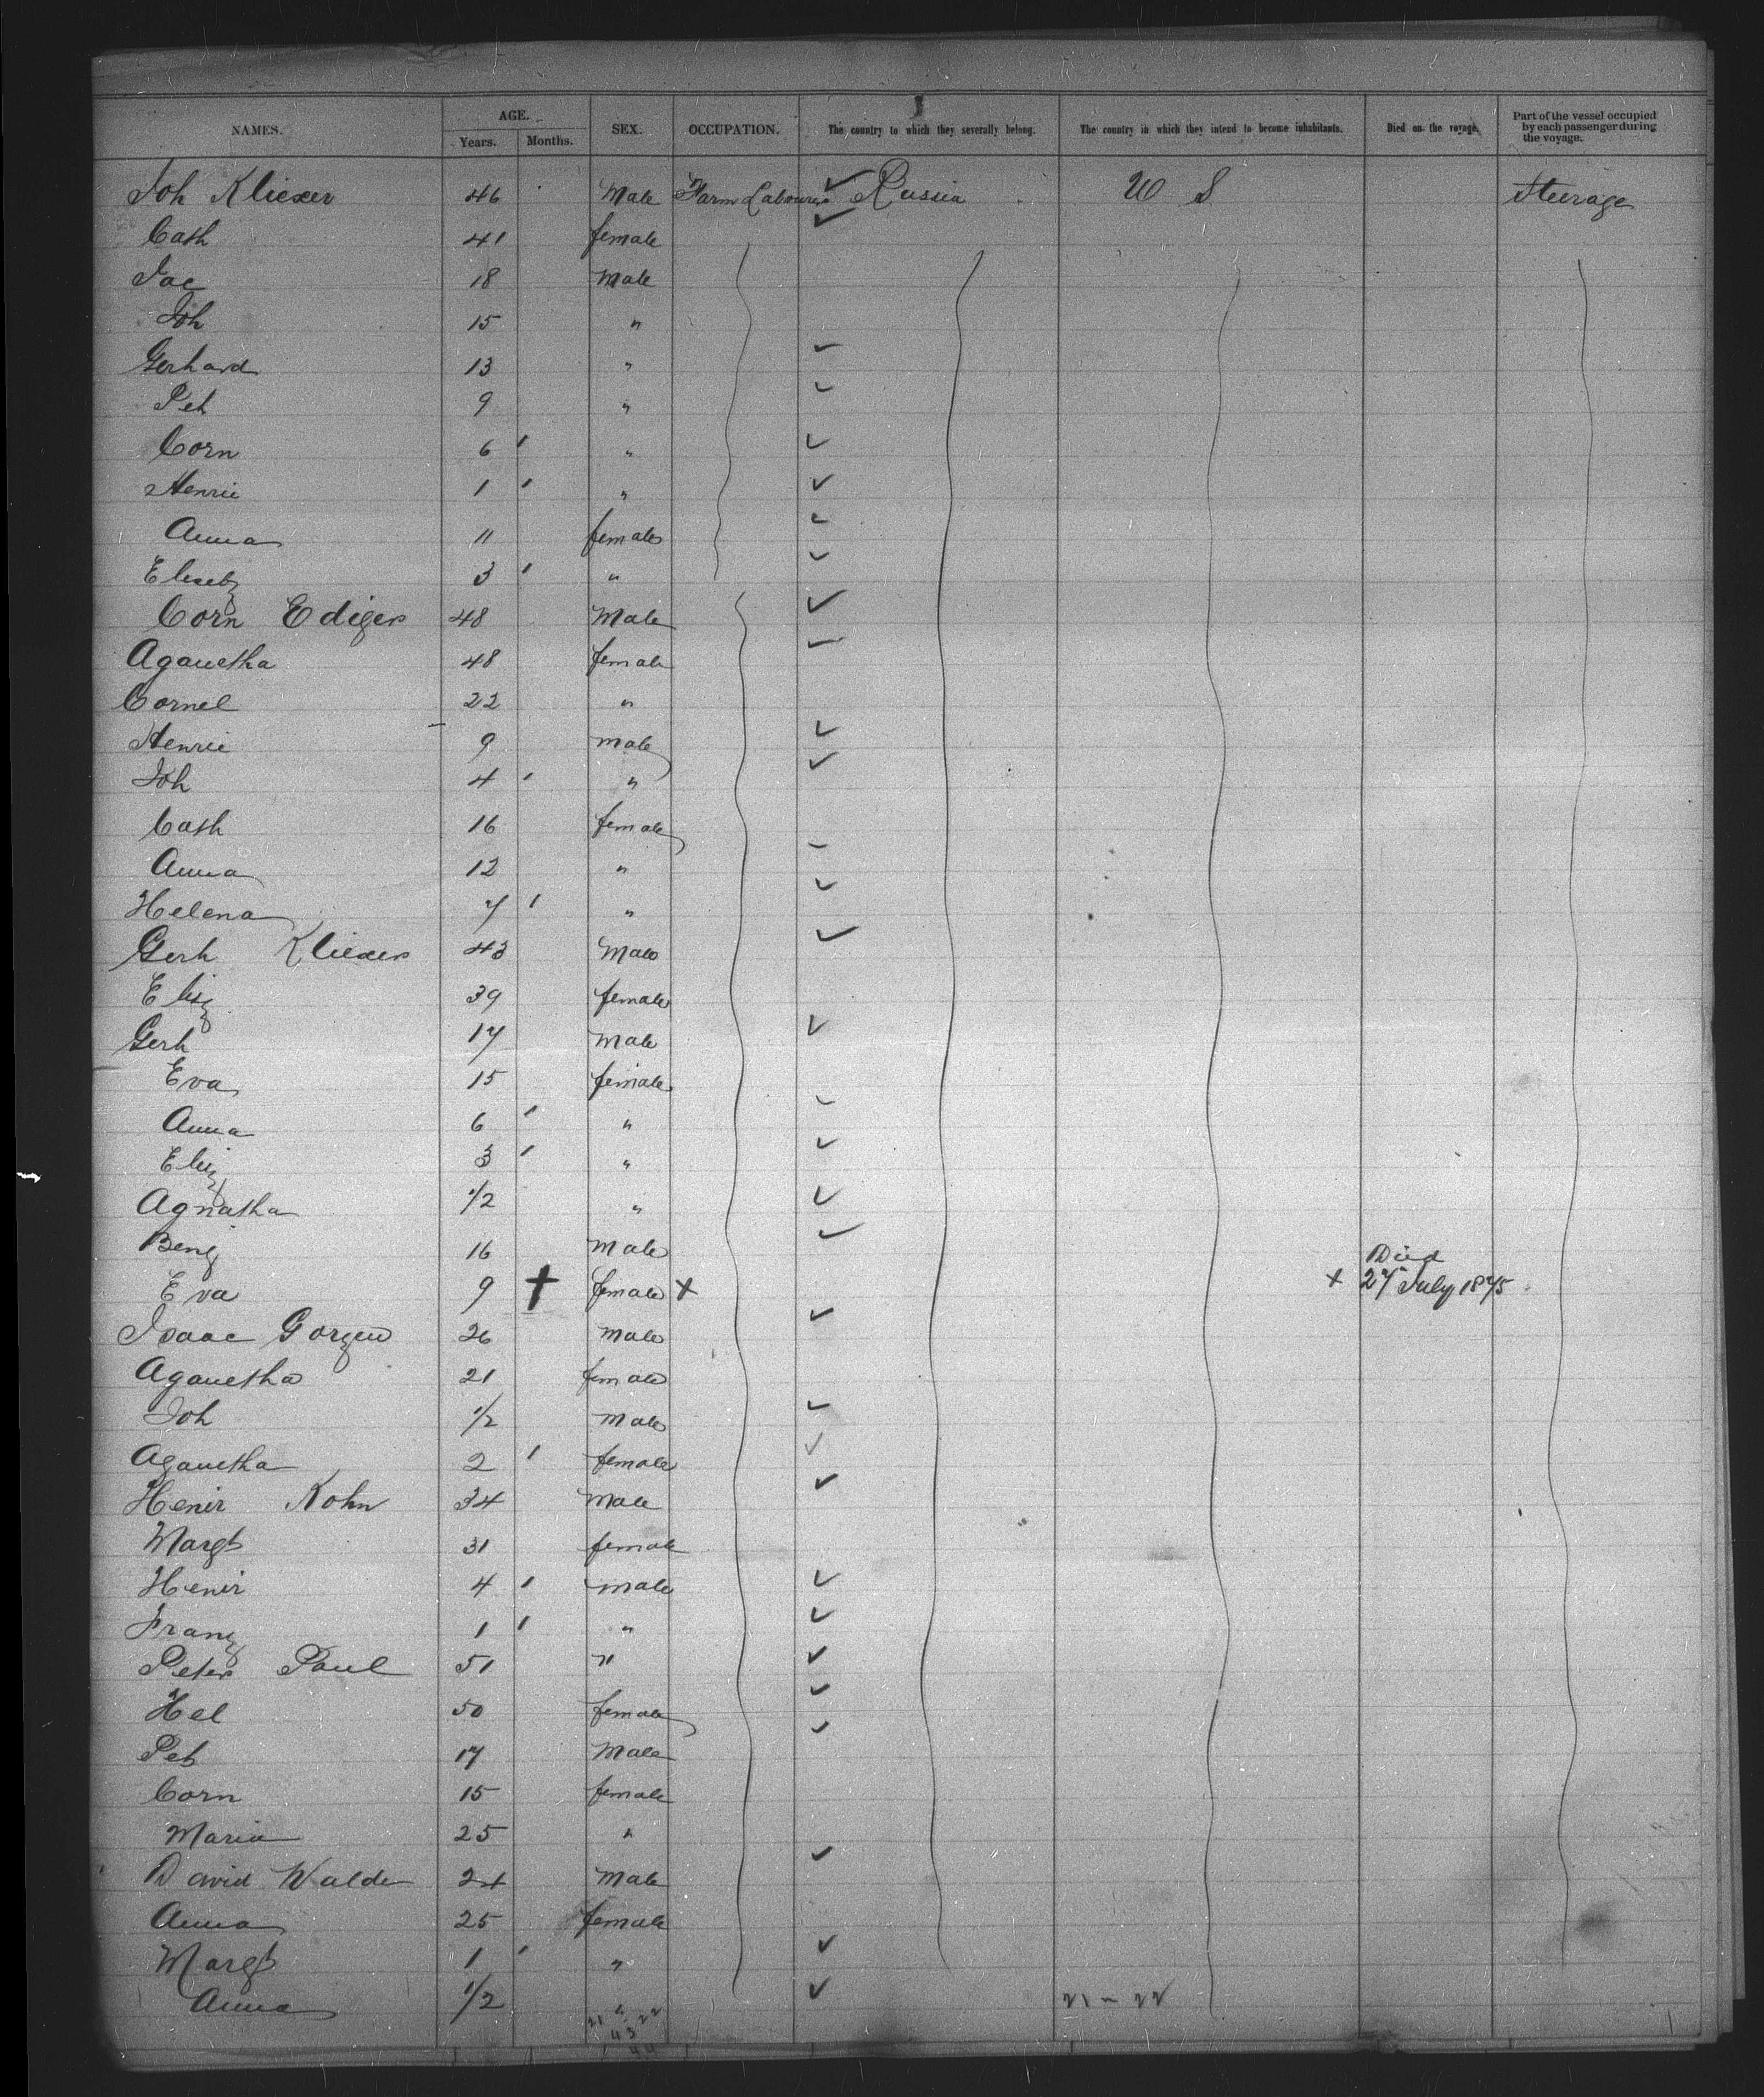 NAMES. AGE. Years. Months. SEX. OCCUPATION. The country to which they severally belong. The country in which they intend to become inhabitants. Died on the voyage. Part of the vessel occupied by each passenger during the voyage.
Joh Kliewer 46 Male Farm Labourer Russia U S Steerage
Cath 41 female
Jac 18 Male
Joh 15 "
Gerhard 13 "
Pet 9 "
Corn 6 "
Henrie 1 "
Anna 11 female
Eliseb 3 "
Corn Ediger 48 Male
Aganetha 48 female
Cornel 22 "
Henrie 9 male
Joh 4 "
Cath 16 female
Anna 12 "
Helena 7 "
Gerh Kliewer 43 Male
Eliz 39 female
Gerh 17 Male
Eva 15 female
Anna 6 "
Eliz 3 "
Agnatha 1/2 "
Benj 16 Male
Eva 9 + female + + Died 27 July 1875
Isaac Gorzen 26 male
Aganetha 21 female
Joh 1/2 Male
Aganetha 2 female
Henir Kohn 34 Male
Margt 31 female
Henir 4 male
Franz 1 "
Peter Paul 51 "
Hel 50 female
Pet 17 Male
Corn 15 female
Maria 25 "
David Walde 24 Male
Anna 25 female
Margt 1 "
Anna 1/2 " 21 - 22
21 22
43
44